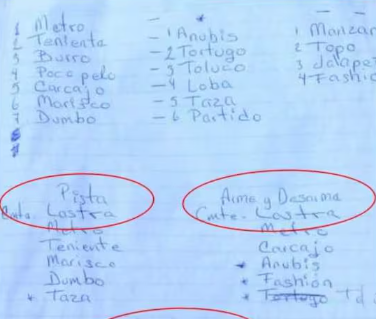 1 Metro
2 Teniente
3 Burro
4 Poco pelo
5 Carcajo
6 Marisco
7 Dumbo
8
9
- 1 Anubis
- 2 Tortugo
- 3 Toluco
- 4 Loba
- 5 Taza
- 6 Partido
1 Manzan
2 Topo
3 Jalape
4 Fashio
Pista
Cmte. Lastra
Metro
Teniente
Marisco
Dumbo
* Taza
Arme y Desarme
Cmte. Lastra
Metro
Carcajo
* Anubis
* Fashion
* Tortugo